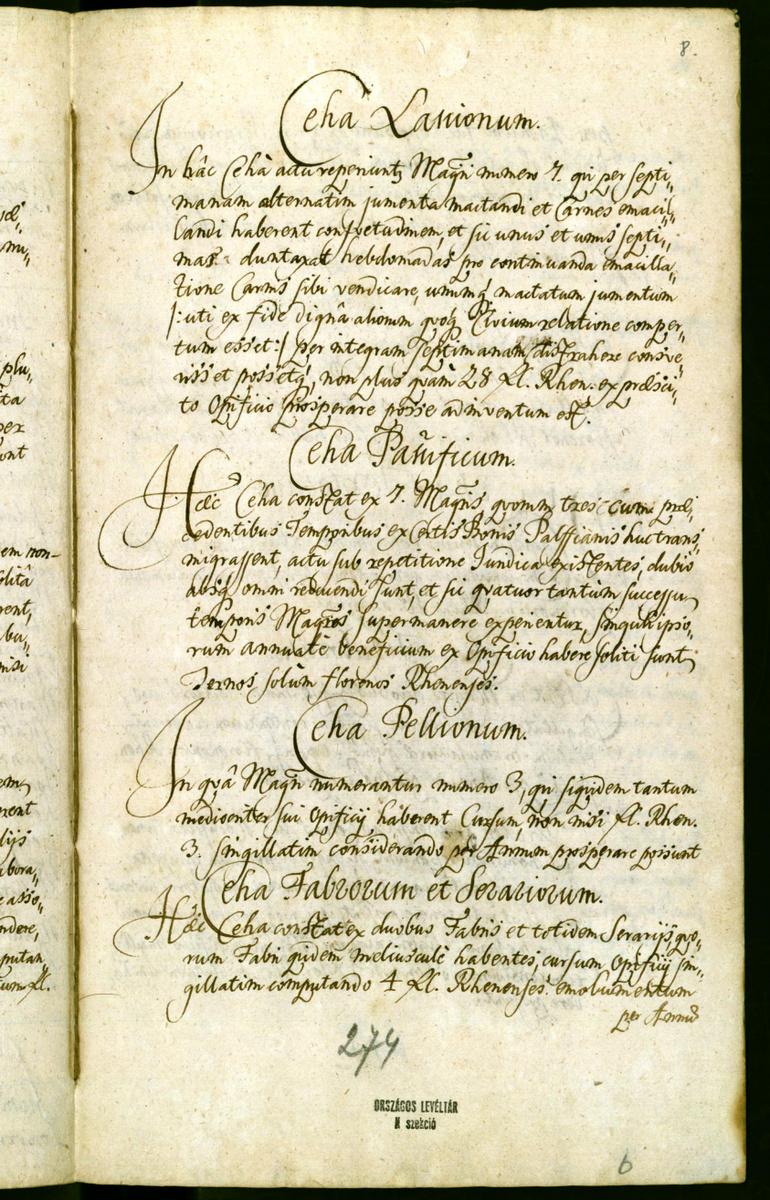 8.
Ceha Lanionum.
In hâc Ceha actu reperiuntꝫ Magrī numero 7. qui per septi„
manam alternatim jumenta mactandi et Carnes emacil„
landi haberent consvetudinem, et sic unus et unus septi„
mas duntaxat hebdomadas pro continuanda emacilla„
tione Carnis sibi vendicare, unumq̃ mactatum jumentum
/: uti ex fide dignâ aliorum quoq̃ Civium relatione comper„
tum esset :/ per integram septimanam distrahere consve„
visset possetq̃, non plus quàm 28 fl. Rhen. ex præsci„
to Opificio prosperare posse adinventum est.
Ceha Pannificum.
Hæc Ceha constat ex 7. Magrīs, quorum tres cum præ„
cedentibus Temporibus ex Certis Bonis Palffianis huc trans„
migrassent, actu sub repetitione Iuridica existentes, dubio
absq̃ omni reducendi sunt, et sic quatuor tantum successu
temporis Magros supermanere experientur, singuli ipso„
rum annuatè beneficium ex Opificio habere soliti sunt
Ternos solùm florenos Rhenenses.
Ceha Pellionum.
In quâ Magrī numerantur numero 3, qui siquidem tantum
mediocriter sui Opificij haberent Cursum, non nisi fl. Rhen.
3. singillatim considerando per Annum prosperare possunt
Ceha Fabrorum et Serariorum.
Hæc Ceha constat ex duobus Fabris et totidem Serarijs, quo„
rum Fabri quidem meliusculè habentes, cursum Opificij sin„
gillatim computando 4 fl. Rhenenses emolumentum
per Annũ
274
ORSZÁGOS LEVÉLTÁR
N szekció
6